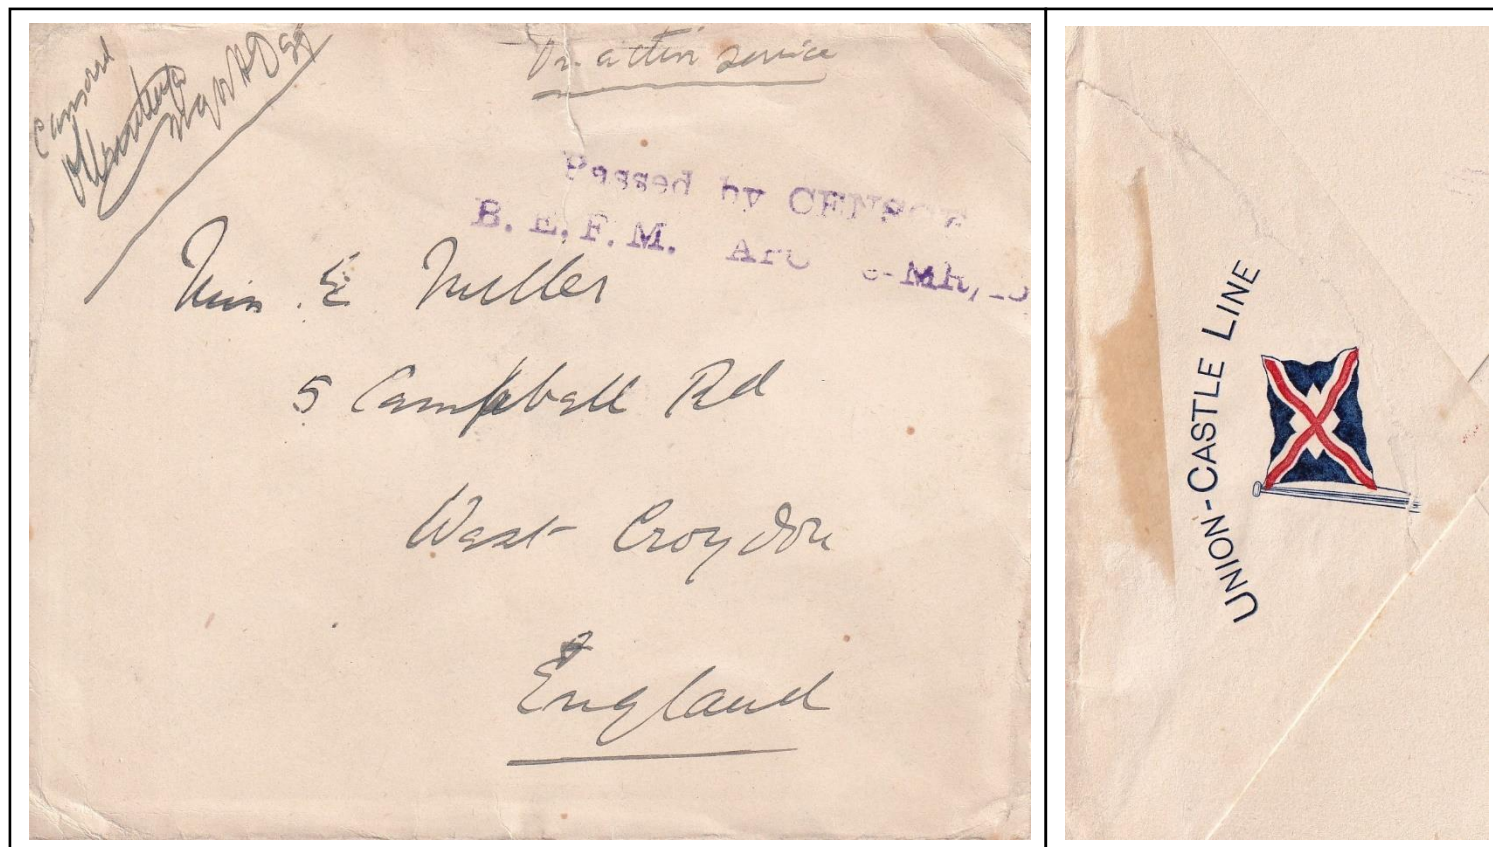 Censored
On active service
Passed by CENSOR
B. E. F. M.
Miss E Miller
5 Campbell Rd
West Croydon
England
UNION-CASTLE LINE